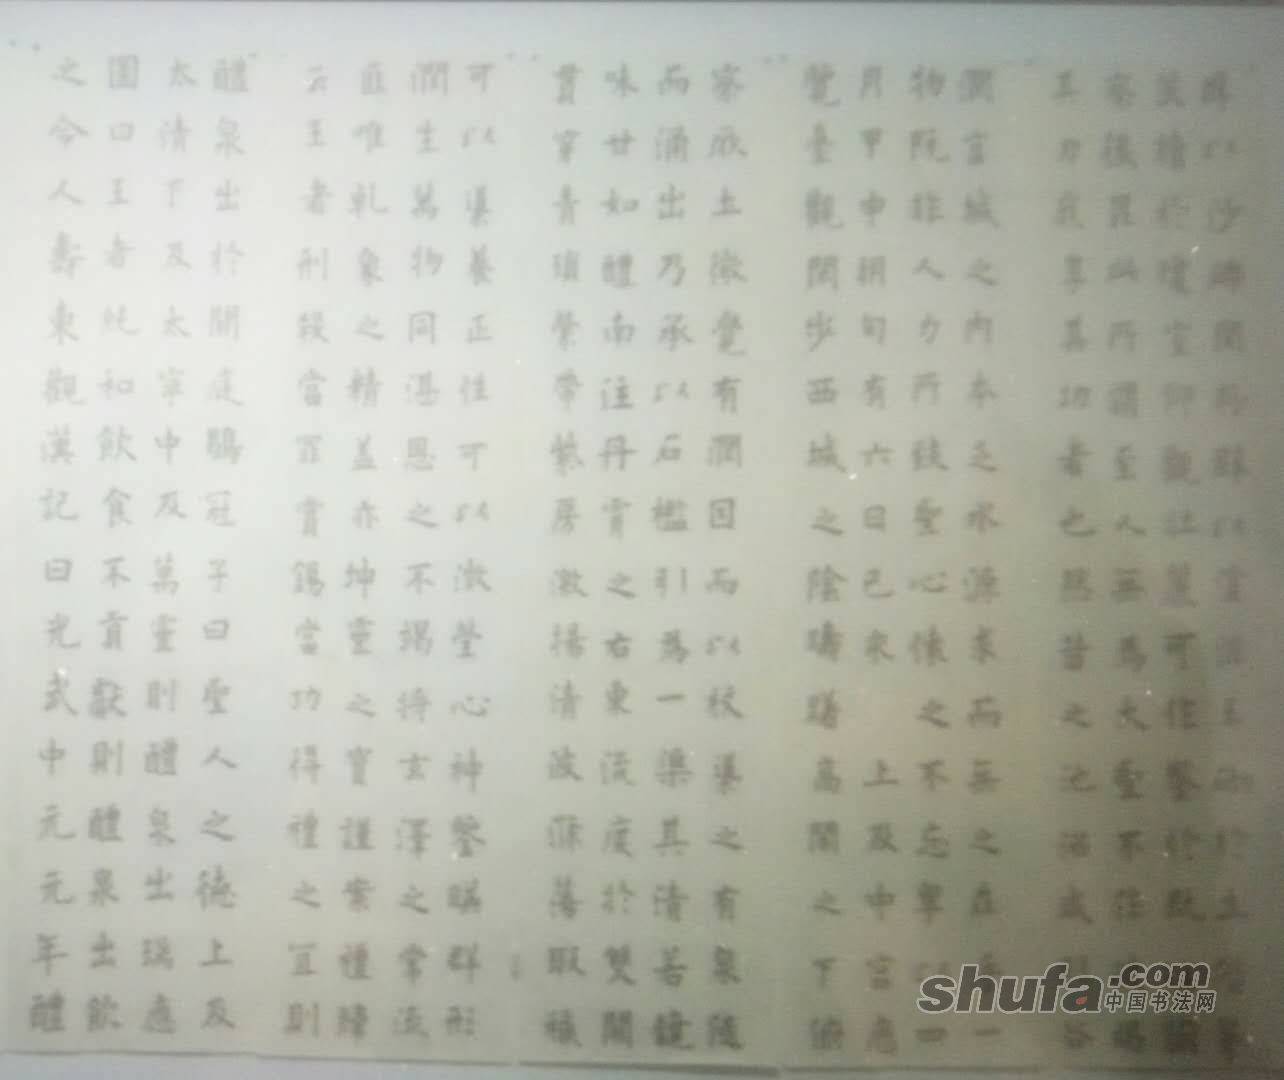 雜以沙礫閒粉壁以塗泥玉砌於土階茅
茨續於瓊室仰觀壯麗可作鑒於既往俯
察後昆此所謂至人無為大聖不作彼竭
其力我享其功者也然昔之池沼咸引谷
澗宮城之內本乏水源求而無之在乎一
物既非人力所致聖心懷之不忘粵以四
月甲申朔旬有六日己未 上及中宮歷
覽臺觀閑步西城之陰躊躇高閣之下俯
察厥土微覺有潤因而以杖導之有泉隨
而涌出乃承以石檻引為一渠其清若鏡
味甘如醴南注丹霄之右東流度於雙闕
貫穿青瑣縈帶紫房激揚清波滌蕩瑕穢
可以導養正性可以澂瑩心神鑒暎群形
潤生萬物同湛恩之不竭將玄澤之常流
匪唯乾象之精蓋亦坤靈之寶謹案禮緯
云王者刑殺當罪賞錫當功得禮之宜則
醴泉出於闕庭鶡冠子曰聖人之德上及
太清下及太寧中及萬靈則醴泉出瑞應
圖曰王者純和飲食不貢獻則醴泉出飲
之令人壽東觀漢記曰光武中元元年醴
shufa.com
中国书法网